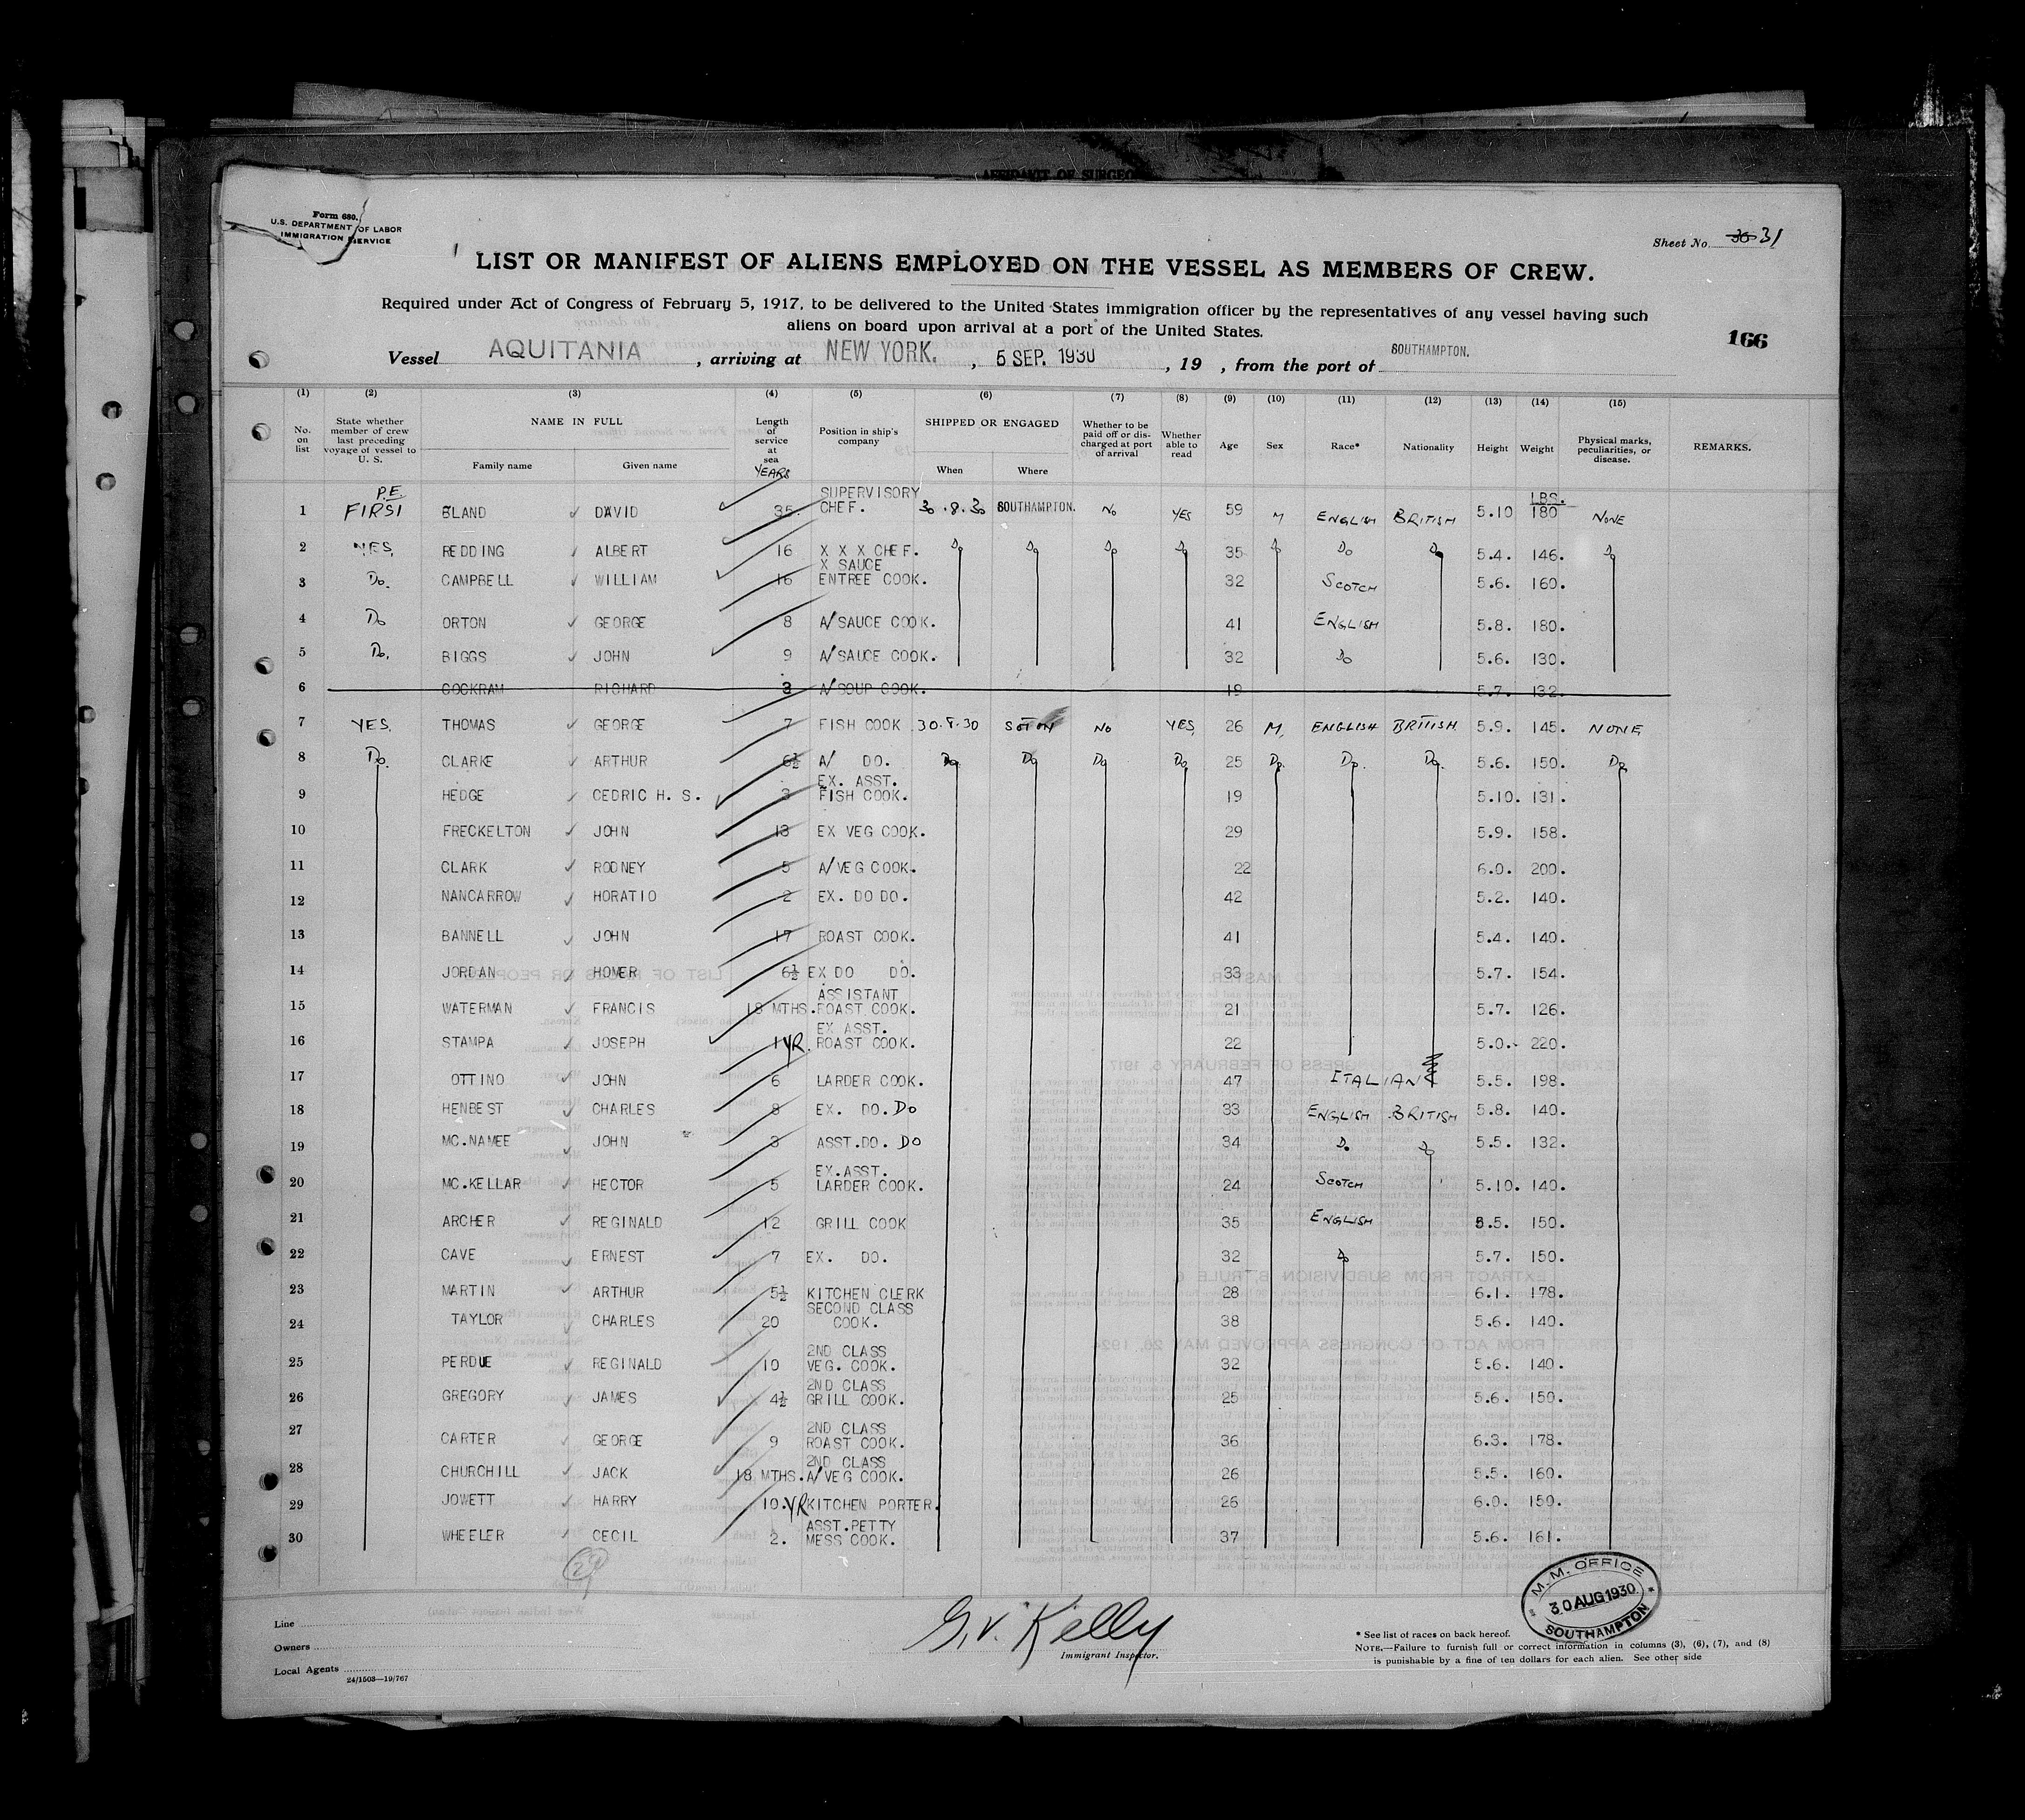 AFFIDAVIT OF SURGEON
Form 680.
U.S. DEPARTMENT OF LABOR
IMMIGRATION SERVICE
Sheet No. 30 31
LIST OR MANIFEST OF ALIENS EMPLOYED ON THE VESSEL AS MEMBERS OF CREW.
Required under Act of Congress of February 5, 1917, to be delivered to the United States immigration officer by the representatives of any vessel having such
aliens on board upon arrival at a port of the United States.
166
Vessel AQUITANIA , arriving at NEW YORK. , 5 SEP. 1930 , 19 , from the port of SOUTHAMPTON.
(1) (2) (3) (4) (5) (6) (7) (8) (9) (10) (11) (12) (13) (14) (15)
No. on list State whether member of crew last preceding voyage of vessel to U. S. NAME IN FULL Family name Given name Length of service at sea YEARS Position in ship's company SHIPPED OR ENGAGED When Where Whether to be paid off or discharged at port of arrival Whether able to read Age Sex Race* Nationality Height Weight Physical marks, peculiarities, or disease. REMARKS.
LBS.
1 P.E. FIRST BLAND DAVID 35. SUPERVISORY CHEF. 30.8.30 SOUTHAMPTON. No YES 59 M ENGLISH BRITISH 5.10 180 NONE
2 YES, REDDING ALBERT 16 X X X CHEF. Do Do Do Do 35 Do Do Do 5.4. 146. Do
3 Do. CAMPBELL WILLIAM 16 X SAUCE ENTREE COOK. 32 SCOTCH 5.6. 160.
4 Do ORTON GEORGE 8 A/SAUCE COOK. 41 ENGLISH 5.8. 180.
5 Do. BIGGS JOHN 9 A/SAUCE COOK. 32 Do 5.6. 130.
6 COCKRAM RICHARD 3 A/SOUP COOK. 19 5.7. 132.
7 YES, THOMAS GEORGE 7 FISH COOK 30.8.30 SOTON No YES, 26 M, ENGLISH BRITISH. 5.9. 145. NONE
8 Do. CLARKE ARTHUR 6½ A/ DO. Do Do Do Do 25 Do. Do. Do. 5.6. 150. Do
9 HEDGE CEDRIC H. S. 3 EX. ASST. FISH COOK. 19 5.10. 131.
10 FRECKELTON JOHN 13 EX VEG COOK. 29 5.9. 158.
11 CLARK RODNEY 5 A/VEG COOK. 22 6.0. 200.
12 NANCARROW HORATIO 2 EX. DO DO. 42 5.2. 140.
13 BANNELL JOHN 17 ROAST COOK. 41 5.4. 140.
14 JORDAN HOMER 6½ EX DO DO. 33 5.7. 154.
15 WATERMAN FRANCIS 18 MTHS. ASSISTANT ROAST COOK. 21 5.7. 126.
16 STAMPA JOSEPH 1 YR. EX ASST. ROAST COOK. 22 5.0. 220.
17 OTTINO JOHN 6 LARDER COOK. 47 ITALIAN 5.5. 198.
18 HENBEST CHARLES 8 EX. DO. DO 33 ENGLISH BRITISH 5.8. 140.
19 MC.NAMEE JOHN 3 ASST.DO. DO 34 Do. Do 5.5. 132.
20 MC.KELLAR HECTOR 5 EX.ASST. LARDER COOK. 24 SCOTCH 5.10. 140.
21 ARCHER REGINALD 12 GRILL COOK 35 ENGLISH 5.5. 150.
22 CAVE ERNEST 7 EX. DO. 32 Do 5.7. 150.
23 MARTIN ARTHUR 5½ KITCHEN CLERK 28 6.1. 178.
24 TAYLOR CHARLES 20 SECOND CLASS COOK. 38 5.6. 140.
25 PERDUE REGINALD 10 2ND CLASS VEG. COOK. 32 5.6. 140.
26 GREGORY JAMES 4½ 2ND CLASS GRILL COOK. 25 5.6. 150.
27 CARTER GEORGE 9 2ND CLASS ROAST COOK. 36 6.3. 178.
28 CHURCHILL JACK 18 MTHS. 2ND CLASS A/VEG COOK. 26 5.5. 160.
29 JOWETT HARRY 10.YR KITCHEN PORTER. 26 6.0. 150.
30 WHEELER CECIL 2. ASST.PETTY MESS COOK. 37 5.6. 161.
29
M. M. OFFICE
30 AUG 1930
SOUTHAMPTON
Line
Owners
Local Agents
24/1503—19/767
G. V. Kelly
Immigrant Inspector.
* See list of races on back hereof.
NOTE.—Failure to furnish full or correct information in columns (3), (6), (7), and (8)
is punishable by a fine of ten dollars for each alien. See other side